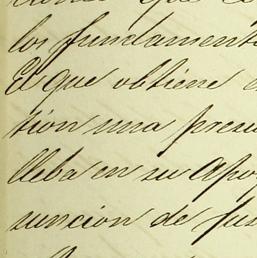 que
los fundament
El que obtiene
tion una presu
lleba en su Apo
suncion de jus